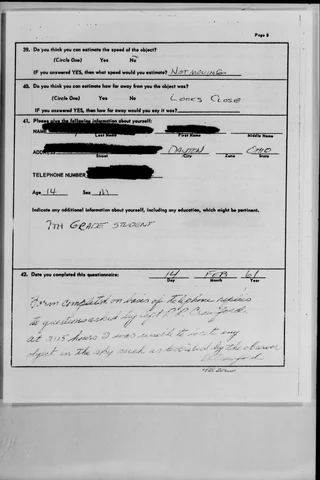 Page 8
39. Do you think you can estimate the speed of the object?
(Circle One) Yes No
IF you answered YES, then what speed would you estimate? NOT MOVING
40. Do you think you can estimate how far away from you the object was?
(Circle One) Yes No LOOKS CLOSE
IF you answered YES, then how far away would you say it was?
41. Please give the following information about yourself:
NAME
Last Name First Name Middle Name
ADDRESS DAYTON OHIO
Street City Zone State
TELEPHONE NUMBER
Age 14 Sex M
Indicate any additional information about yourself, including any education, which might be pertinent.
9TH GRADE STUDENT
42. Date you completed this questionnaire: 14 FEB 61
Day Month Year
Form completed on basis of telephone replies
to questions asked by Sgt Crawford.
at 2115 hours I was unable to locate any
object in the sky such as described by the observer
Crawford